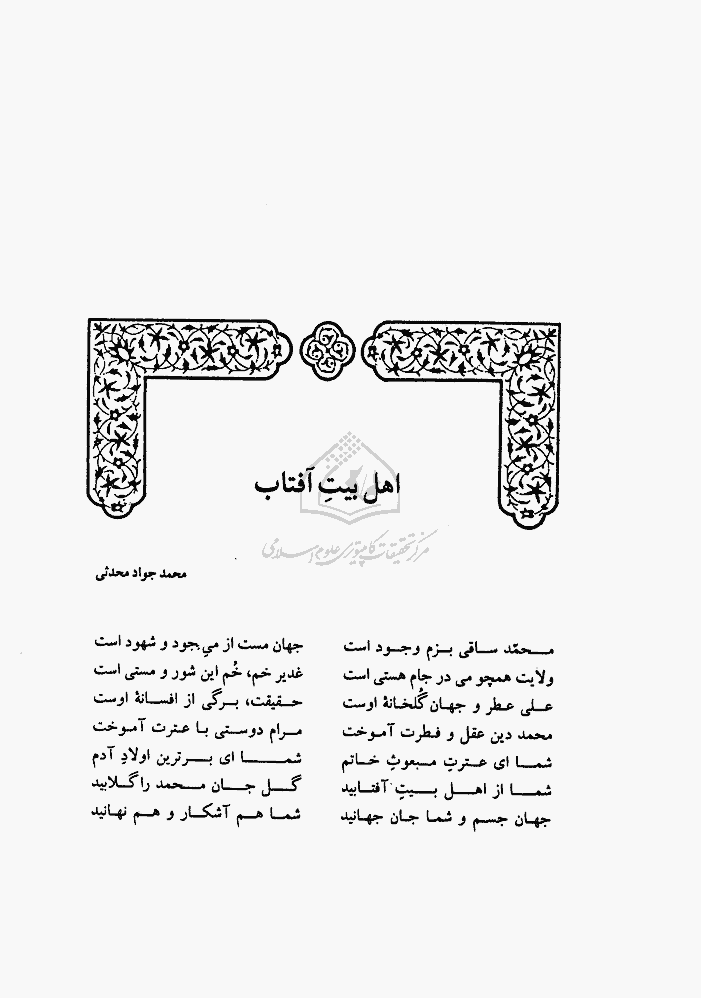 اهل بیتِ آفتاب
مرکز تحقیقات کامپیوتری علوم اسلامی
محمد جواد محدثی
محمّد ساقی بزم وجود است جهان مست از میِ جود و شهود است
ولایت همچو می در جام هستی است غدیر خم، خُم این شور و مستی است
علی عطر و جهان گُلخانهٔ اوست حقیقت، برگی از افسانهٔ اوست
محمد دین عقل و فطرت آموخت مرام دوستی با عترت آموخت
شما ای عترتِ مبعوثِ خاتم شما ای برترین اولادِ آدم
شما از اهل بیتِ آفتابید گل جان محمد را گلابید
جهان جسم و شما جان جهانید شما هم آشکار و هم نهانید